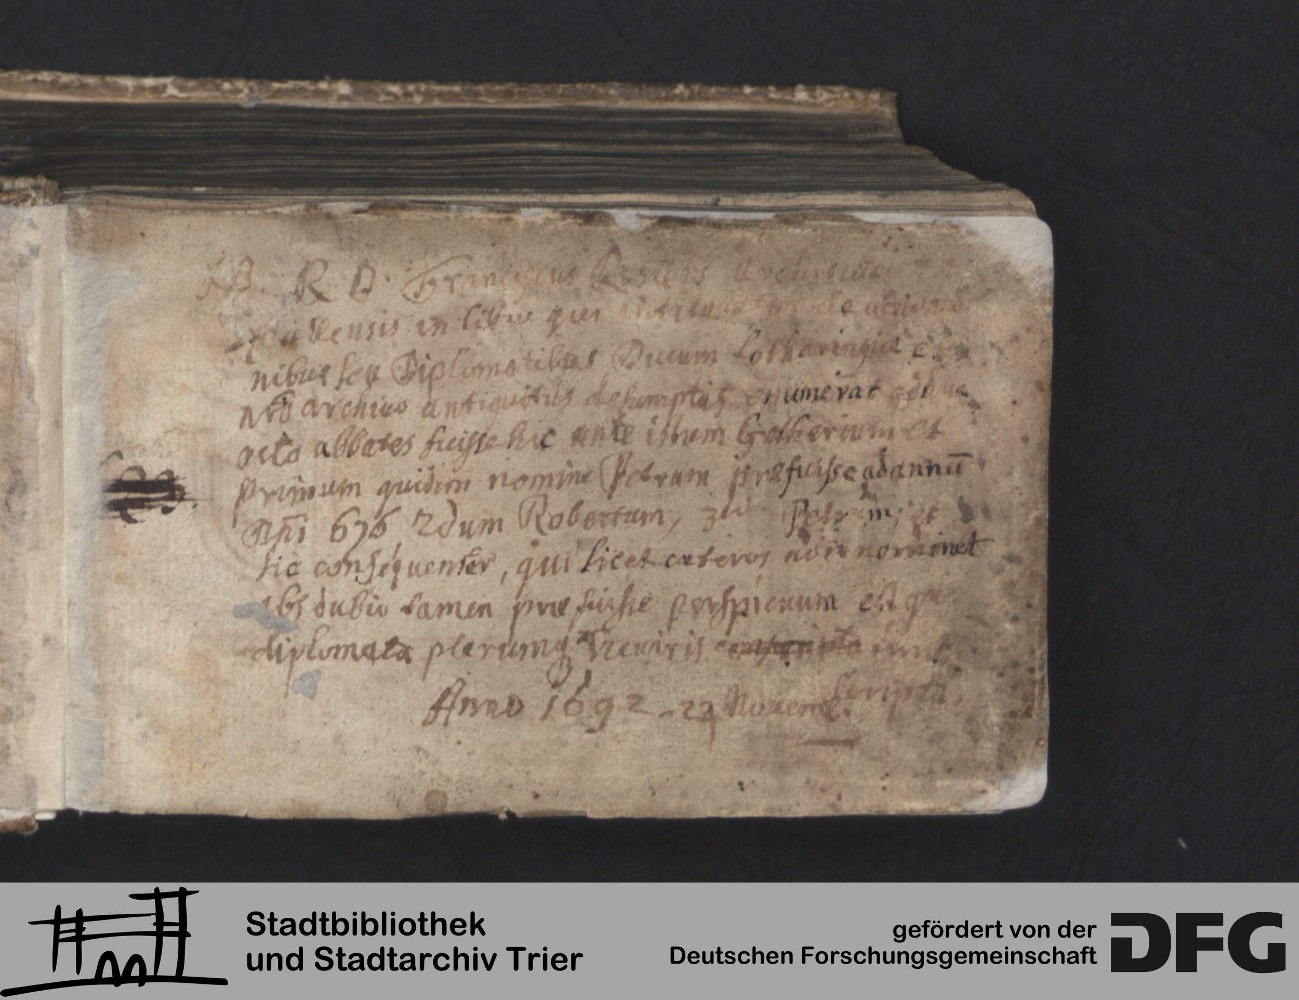 NB. R D. Franciscus Rosieres Archidiac
ensis in libro qui
nibus seu Diplomatibus Ducum Lotharingiae e
archivo antiquitus desumptis enumerat adhuc
octo abbates fuisse hic ante istum Gotherium et
primum quidem nomine Petrum praefuisse ad annū
Dñi 676 2dum Robertum, 3ū Petrum, et
sic consequenter, qui licet caeteros non nominet
absdubio tamen praefuisse perspicuum est
diplomata plerumq Treviris sunt
scripta.
Anno 1692 - 22 Novemb.
Stadtbibliothek
und Stadtarchiv Trier
gefördert von der
Deutschen Forschungsgemeinschaft
DFG